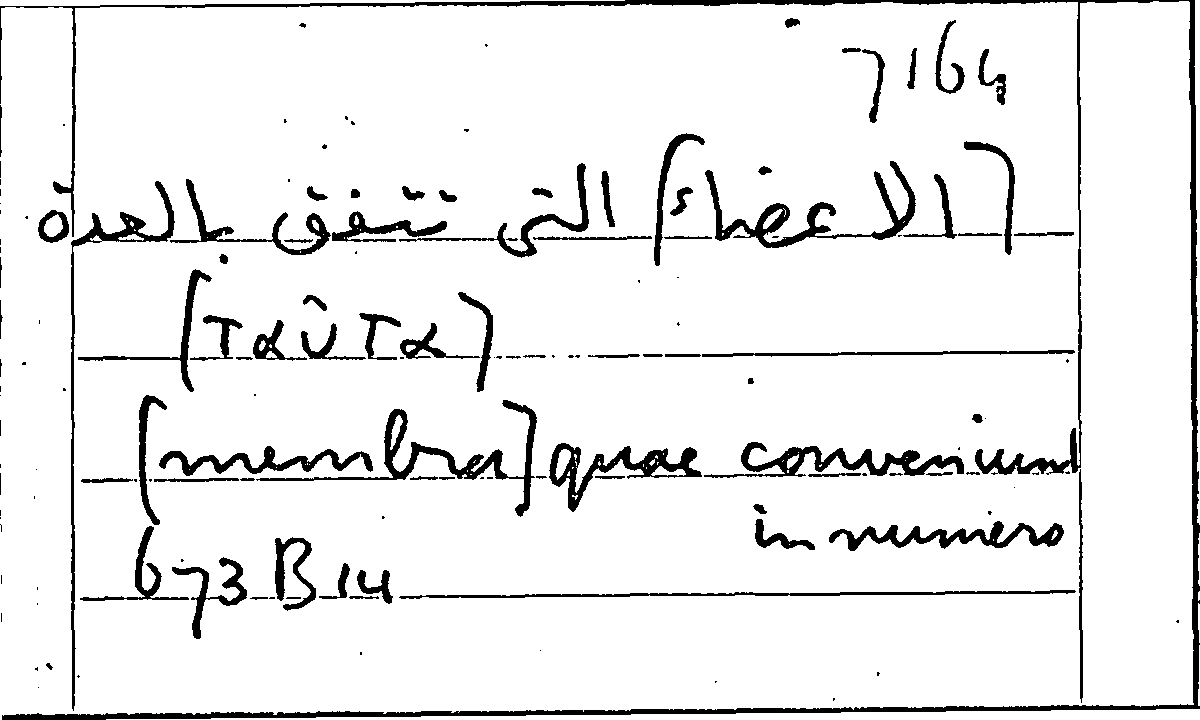 7164
[الاعضاء] التى تتفق بالعدة
[ταῦτα]
[membra] quae conveniunt
in numero
673 B 14